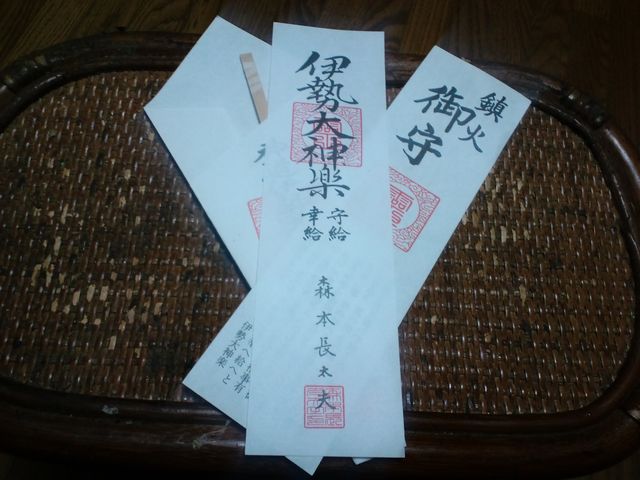 伊勢大神楽
守給
幸給
森本長太夫
鎮火
御守
伊勢大神楽へと